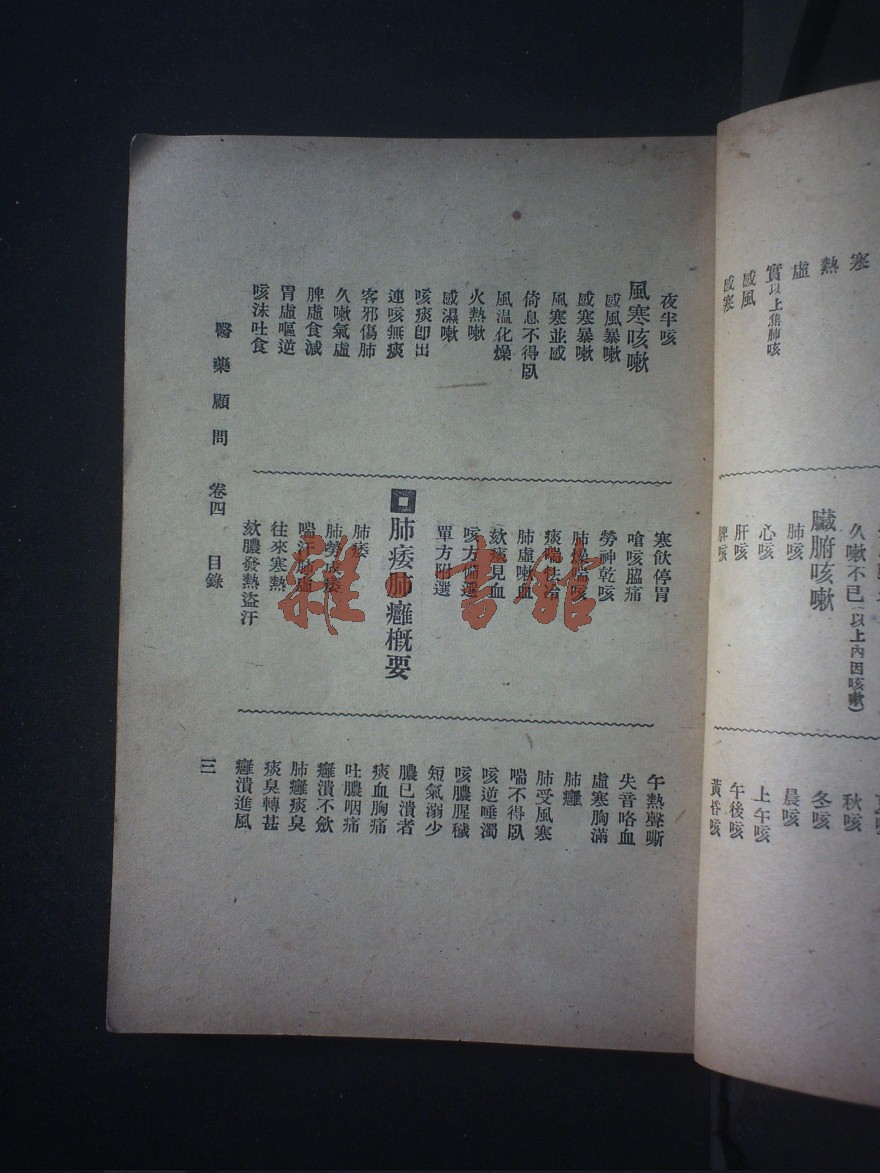 寒
熱
虛
實以上焦肺咳
感風
感寒
久嗽不已(以上內因咳嗽)
臟腑咳嗽
肺咳
心咳
肝咳
脾咳
秋咳
冬咳
晨咳
上午咳
午後咳
黃昏咳
夜半咳
風寒咳嗽
感風暴嗽
感寒暴嗽
風寒並感
倚息不得臥
風溫化燥
火熱嗽
感濕嗽
咳痰卽出
連咳無痰
客邪傷肺
久嗽氣虛
脾虛食減
胃虛嘔逆
咳沫吐食
寒飲停胃
嗆咳脇痛
勞神乾咳
肺燥喘咳
痰喘怯冷
肺虛嗽血
欬痰見血
咳方備選
單方附選
肺痿肺癰概要
肺痿
肺勞成痿
喘汗肺虛
往來寒熱
欬膿發熱盜汗
午熱聲嘶
失音咯血
虛寒胸滿
肺癰
肺受風寒
喘不得臥
咳逆唾濁
咳膿腥穢
短氣溺少
膿已潰者
痰血胸痛
吐膿咽痛
癰潰不斂
肺癰痰臭
痰臭轉甚
癰潰進風
醫藥顧問 卷四 目錄
三
雜·書館